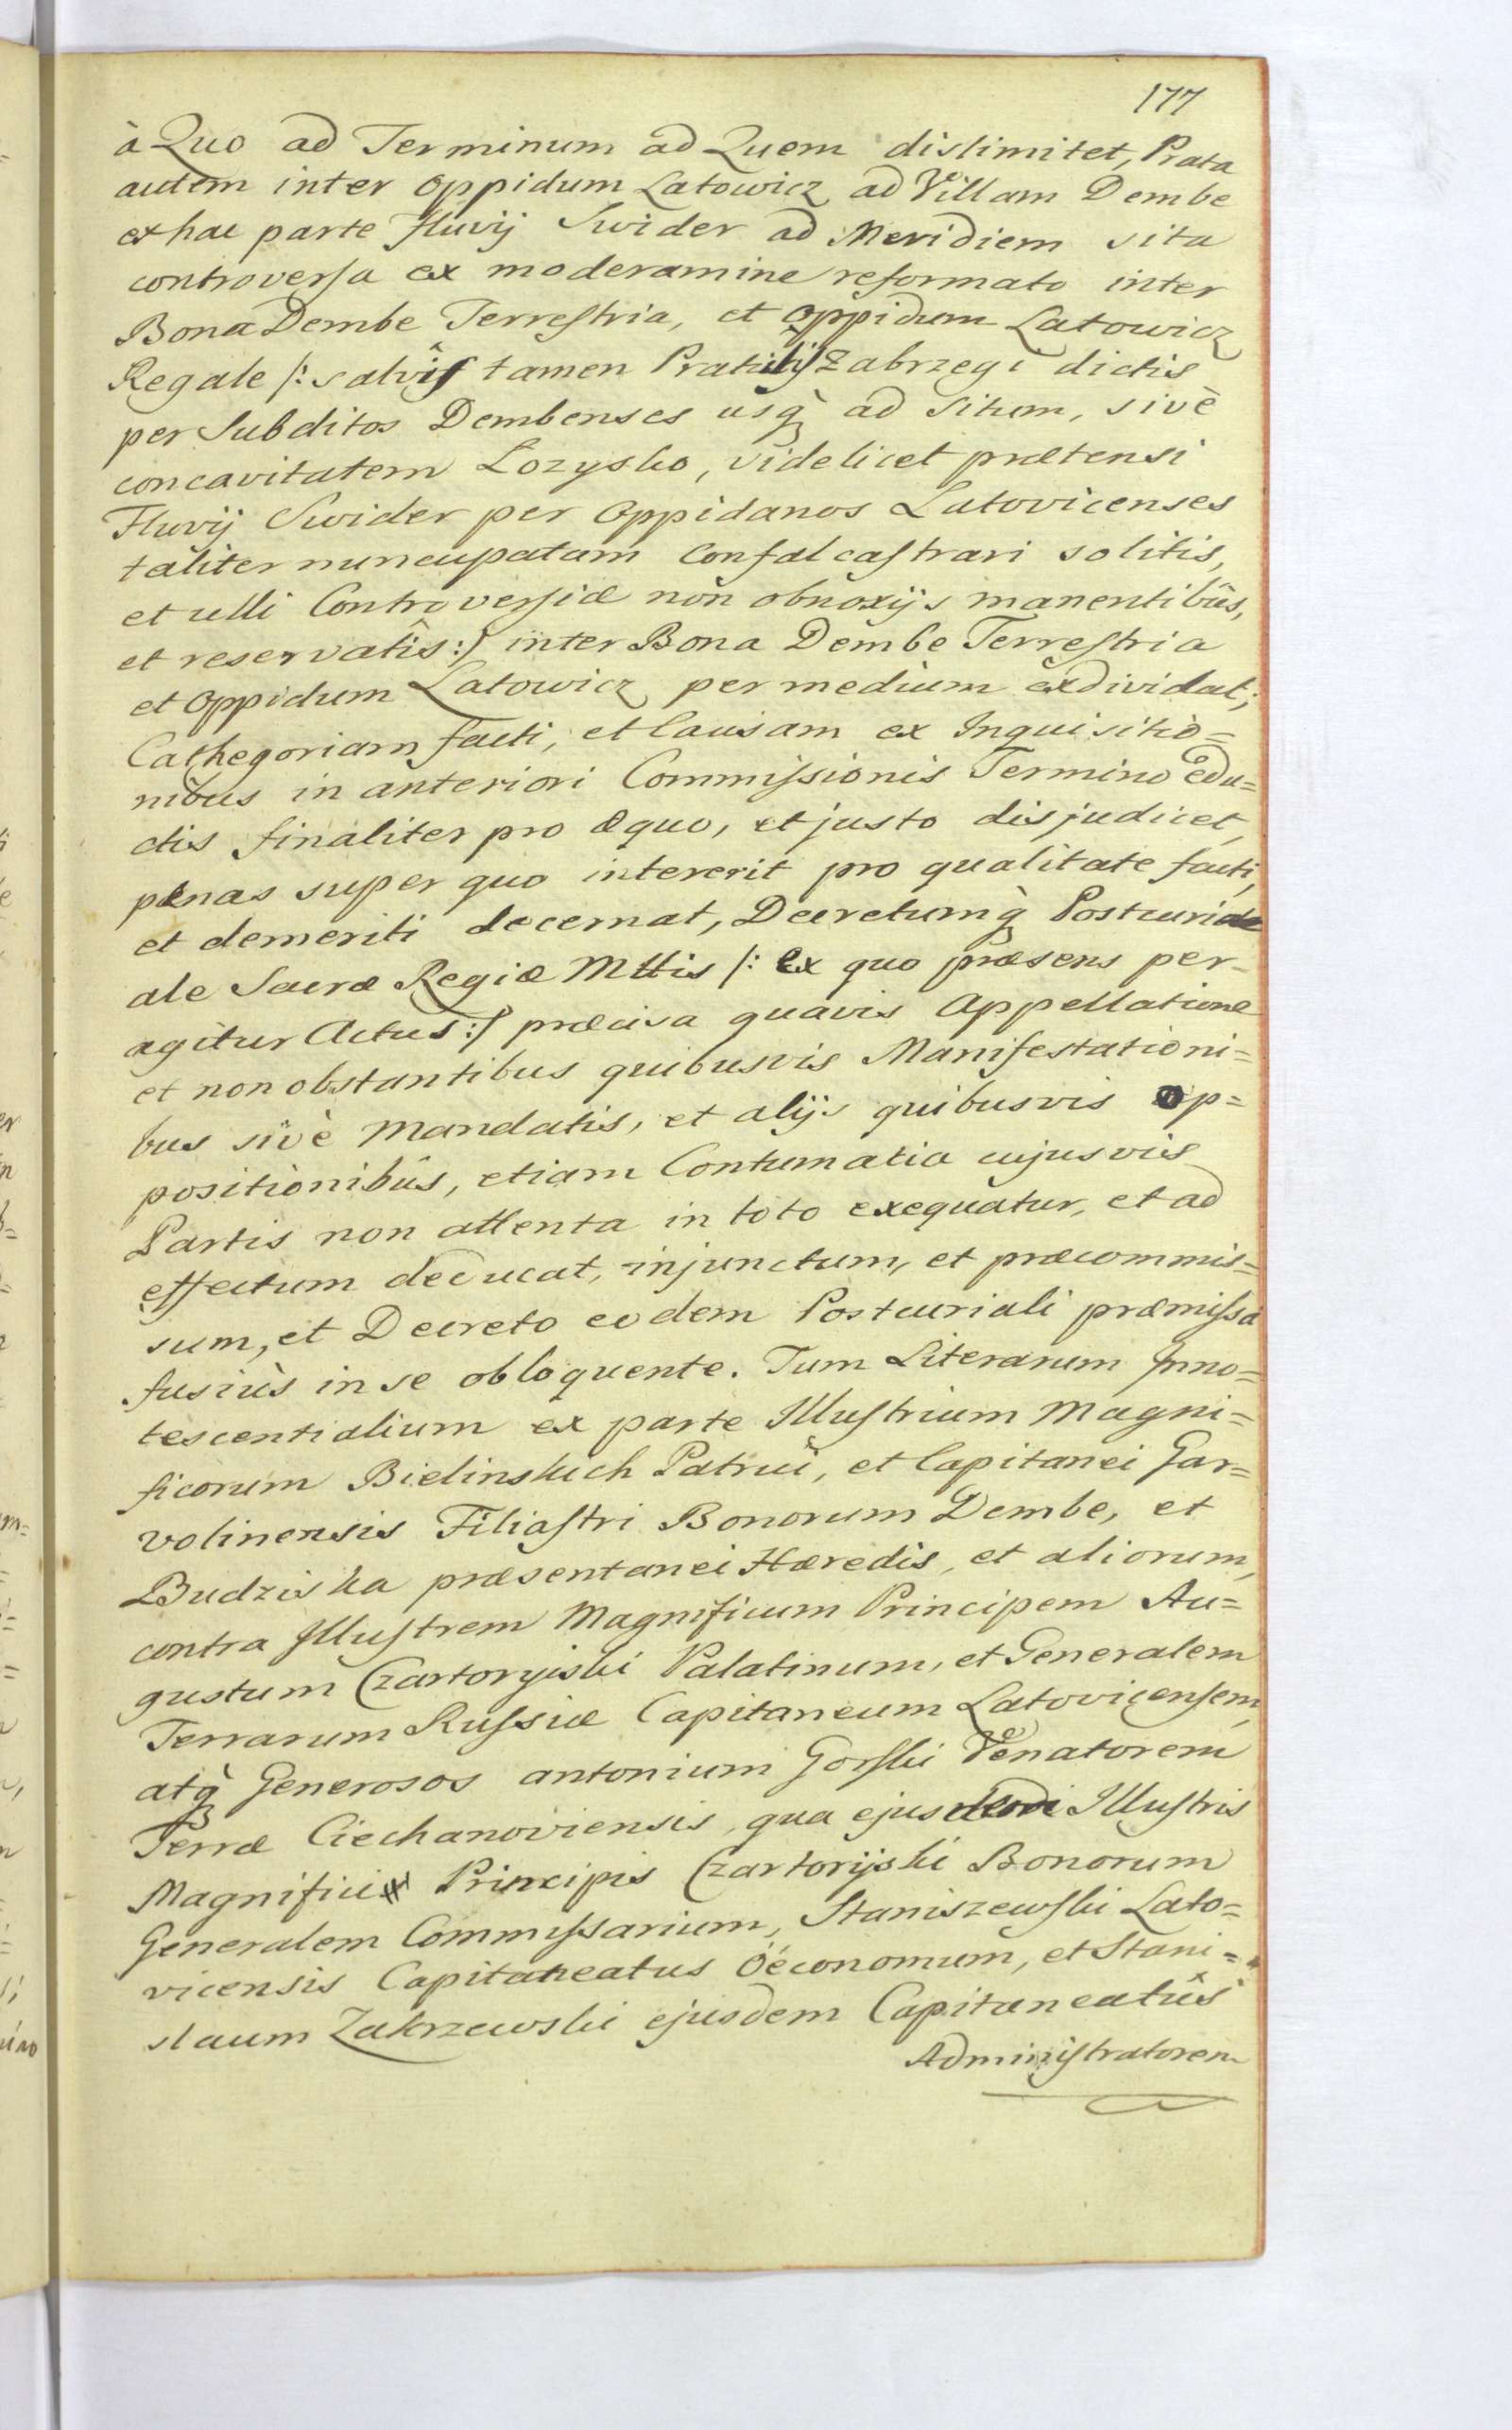 177
à Quo ad Terminum ad Quem dislimitet, Prata
autem inter Oppidum Latowicz ad Villam Dembe
ex hac parte Fluvij Swider ad Meridiem sita
controversa ex moderamine reformato inter
Bona Dembe Terrestria, et Oppidum Latowicz
Regale /: salvîs tamen Zabrzegi dictis
per Subditos Dembenses usq̀ ad Situm, sivè
concavitatem Lozysko, videlicet prætensi
Fluvij Swider per Oppidanos Latovicenses
taliter nuncupatam confalcastrari solitis,
et ulli Controversiæ non obnoxijs manentibûs,
et reservatîs :/ inter Bona Dembe Terrestria
et Oppidum Latowicz per medium exdividat;
Cathegoriam facti, et Causam ex Inquisitio=
nibus in anteriori Commissionis Termino edu=
ctis finaliter pro æquo, et justo disjudicet,
penas super quo intererit pro qualitate facti,
et demeriti decernat, Decretumq̀ Postcuri
ale Sacræ Regiæ Mttis /: ex quo præsens per=
agitur Actus :/ præcisa quavis Appellatione
et non obstantibus quibusvis Manifestationi=
bus sivè Mandatis, et alijs quibusvis Op=
positionibûs, etiam Contumatia cujusvis
Partis non attenta in toto exequatur, et ad
effectum deducat, injunctum, et præcommis=
sum, et Decreto eodem Postcuriali præmissa
fusiùs in se obloquente. Tum Literarum Inno=
tescentialium ex parte Illustrium Magni=
ficorum Bielinskich Patrui, et Capitanei Gar=
volinensis Filiastri Bonorum Dembe, et
Budziska præsentanei Hæredis, et aliorum,
contra Illustrem Magnificum Principem Au=
gustum Czartoryiski Palatinum, et Generalem
Terrarum Russiæ Capitaneum Latovicensem,
atq̀ Generosos Antonium Gorski Venatorem
Terræ Ciechanoviensis, qua ejusdem Illustris
Magnifici Principis Czartorijski Bonorum
Generalem Commissarium, Staniszewski Lato=
vicensis Capitaneatus Oeconomum, et Stani=
slaum Zakrzewski ejusdem Capitaneatûs
Administratorem